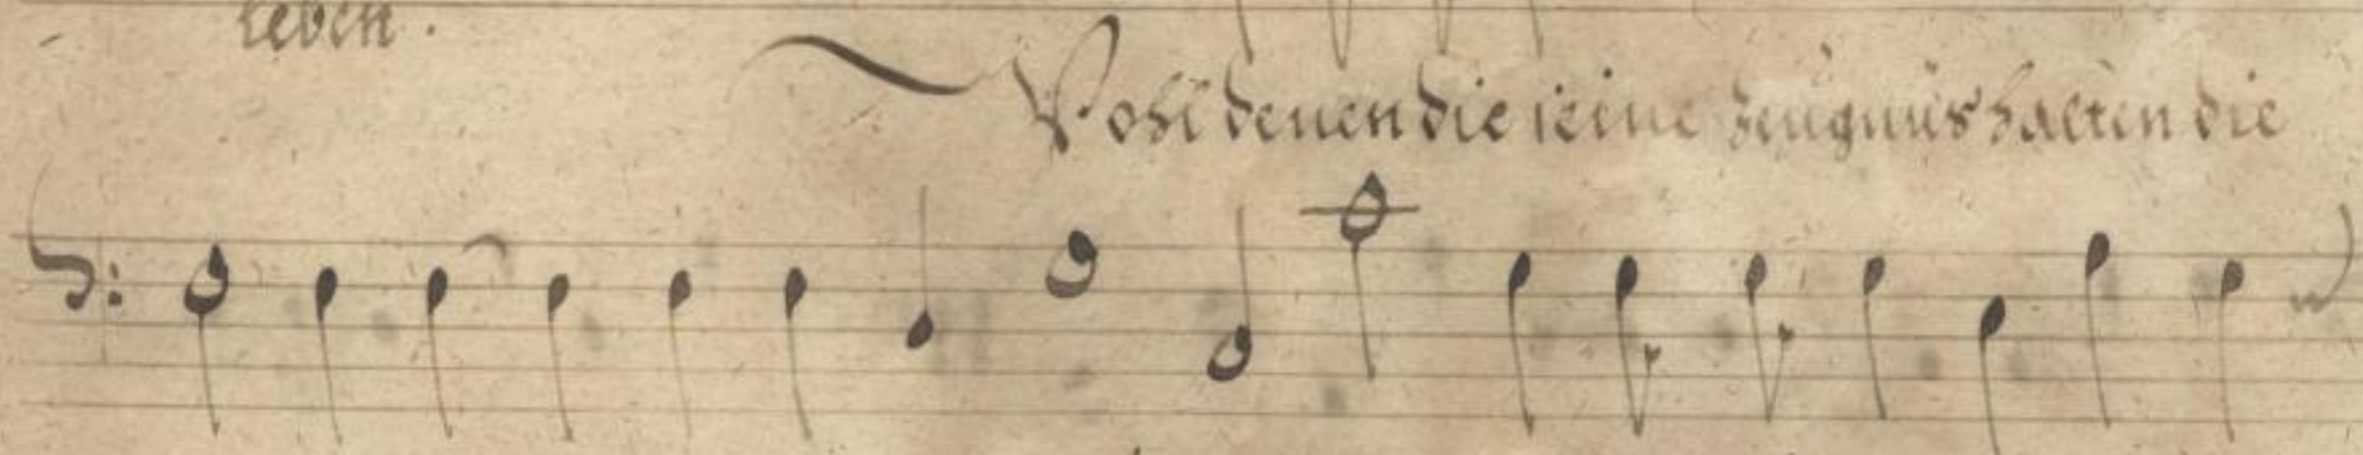 leben.
Wohl denen die seine zeugnüs halten die